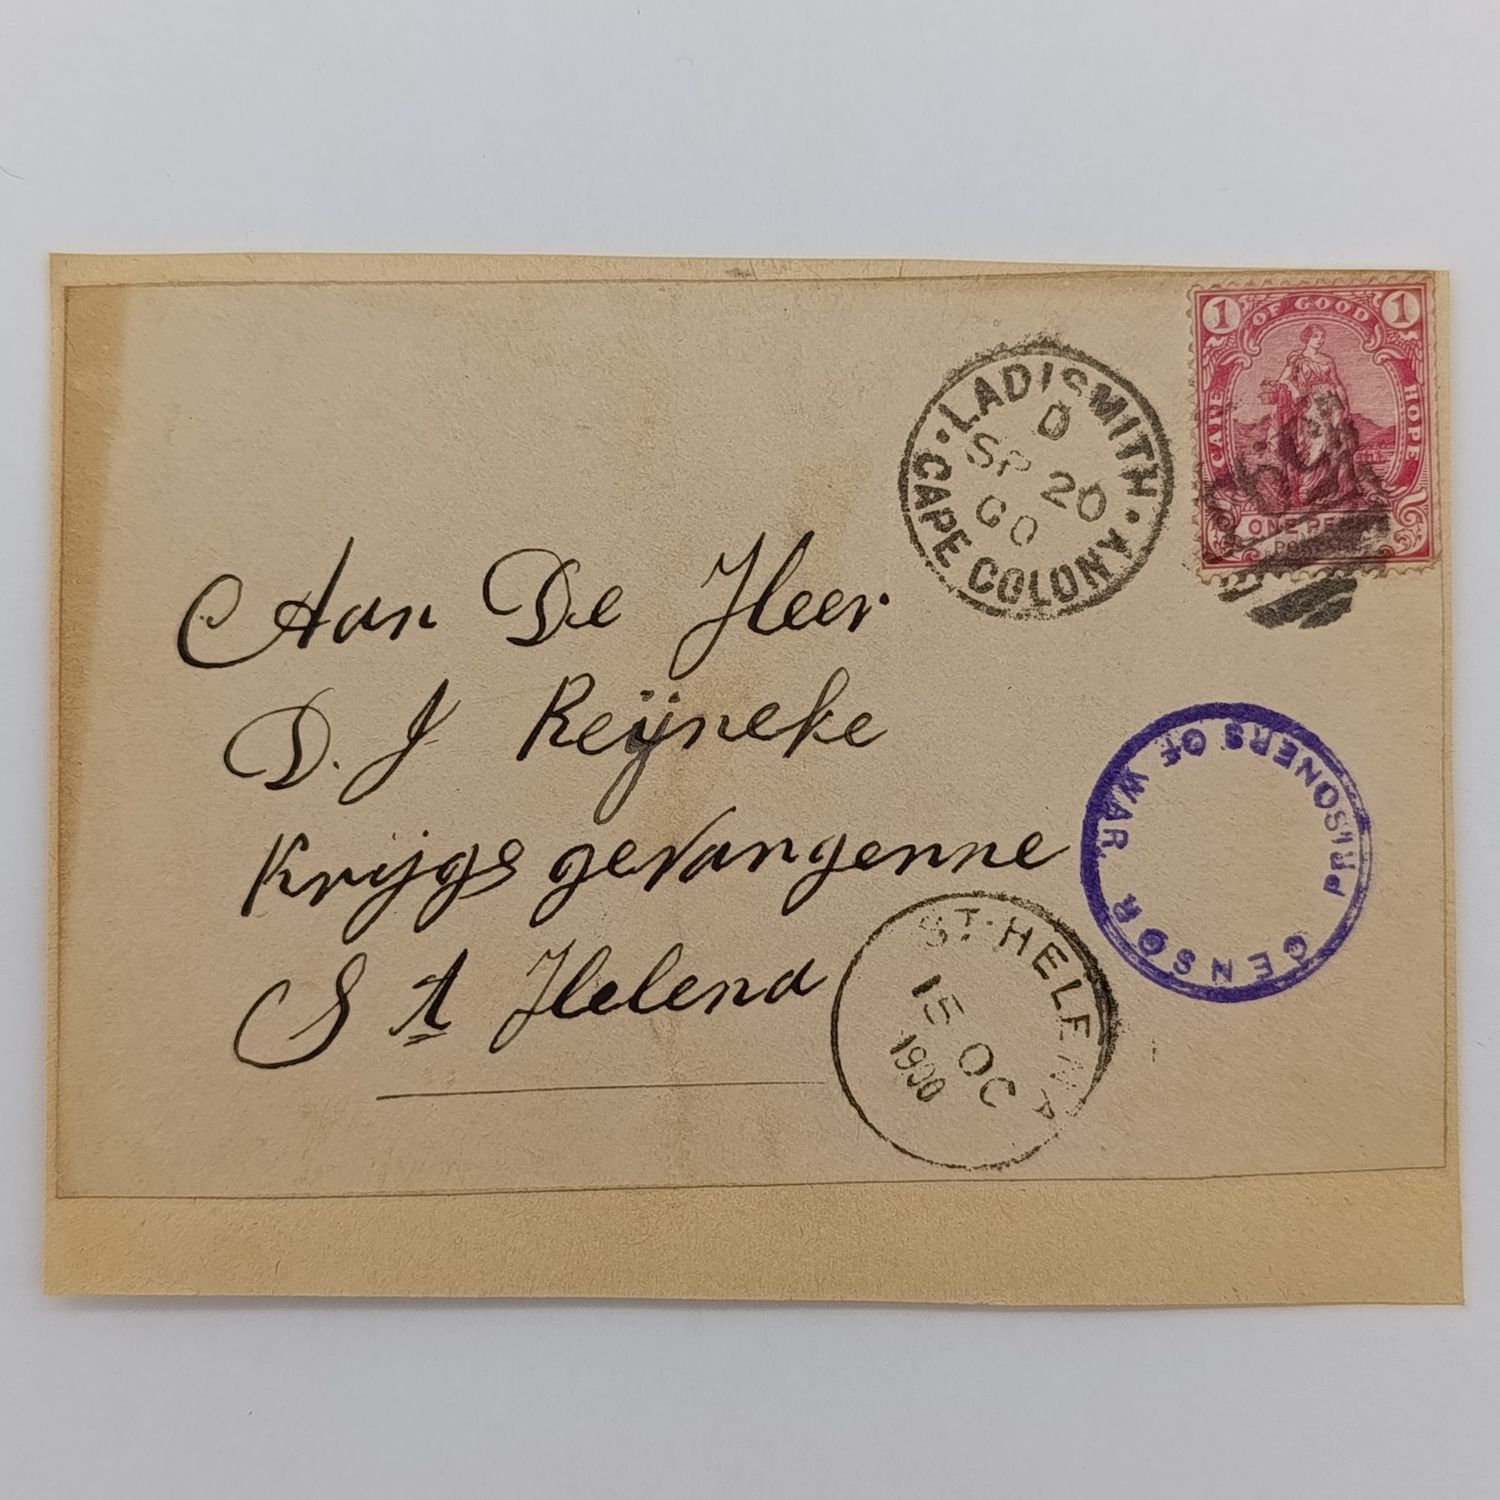 1 OF GOOD 1
CAPE
HOPE
ONE PENNY
LADISMITH
D
SP 20
00
CAPE COLONY
Aan De Heer
D. J Reijneke
Krijgs gevangenne
St Helena
PRISONERS OF WAR
CENSOR
ST. HELENA
15 OC
1900